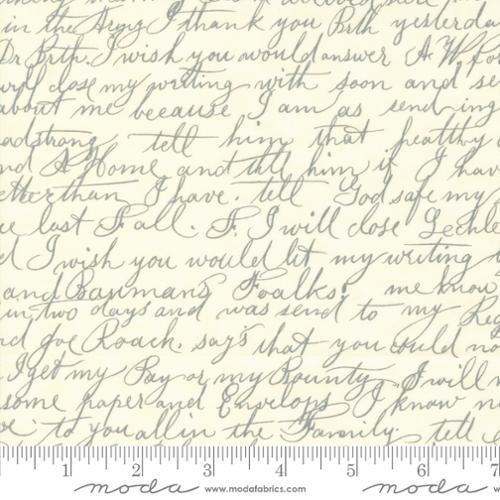 in the Army I thank you Brth yesterda
Dr Brth. I wish you would answer A.W. Fo
will close my writing with soon and se
about me because I am as sending
adstrong tell him that healthy
nd A Home and till him if I hav
etter than I have. tell God safe my
e last Fall. F. I will close Lechle
d I wish you would let my writing
and Baumans Foalks, me know
in two days and was send to my Reg
nd Joe Roach. says that you could no
I get my Pay or my Bounty I will
some paper and Envelops I know
to you all in the Family. tell
1 2 3 4 5 6 7
moda www.modafabrics.com moda www.modafabrics.com moda